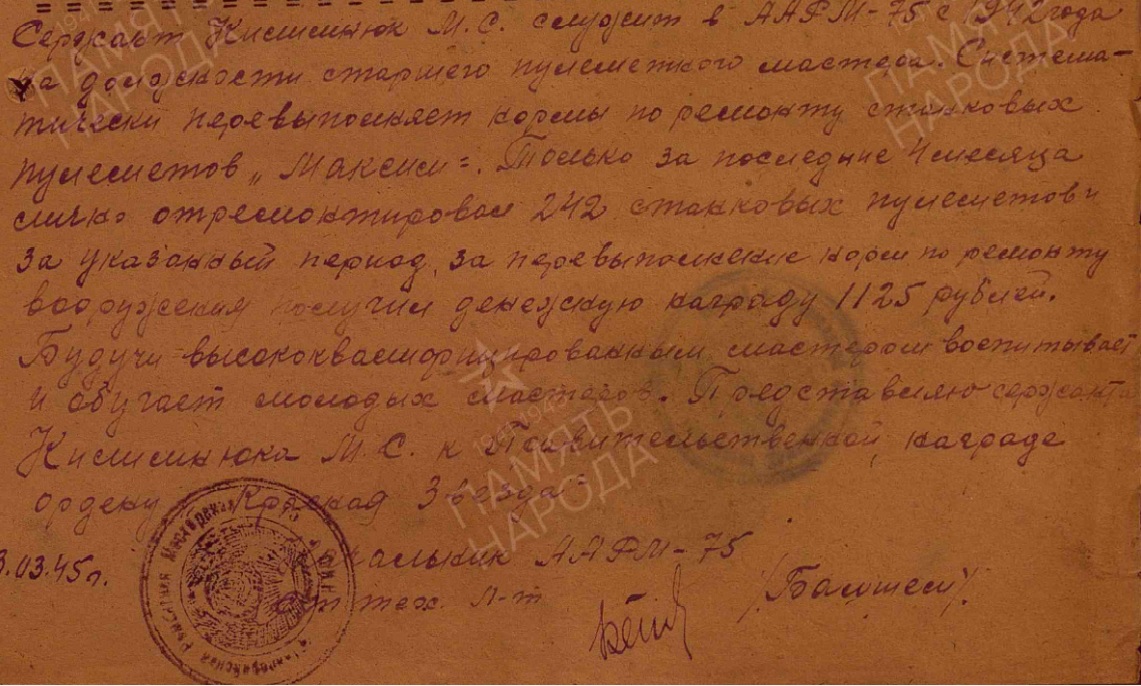 Сержант М.С. служит в ААРМ-75 с 1942 года
на должности старшего пулеметного мастера. Система-
тически перевыполняет нормы по ремонту станковых
пулеметов „Максим". Только за последние 4 месяца
лично отремонтировал 242 станковых пулеметов и
за указанный период, за перевыполнение норм по ремонту
вооружения получил денежскую награду 1125 рублей.
Будучи высококвалифицированным мастером воспитывает
и обучает молодых мастеров. Представляю сержанта
М.С. к Правительственной награде
ордену „Красная Звезда"
Начальник ААРМ-75
.03.45г.
ст. тех. л-т
ПАМЯТЬ
НАРОДА
ПАМЯТЬ
НАРОДА
ПАМЯТЬ
НАРОДА